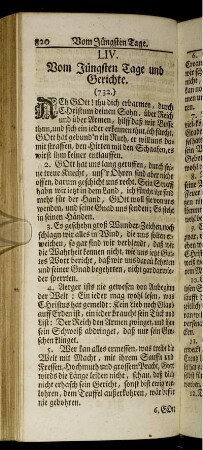 820 Vom Jüngsten Tage.
LIV.
Vom Jüngsten Tage und
Gerichte.
(732.)
ACh GOtt! thu dich erbarmen, durch
Christum deinen Sohn, über Reich
und über Armen, hilff daß wir Busse
thun, und sich ein jeder erkennen thu, ich fürcht,
GOtt hat gebund'n ein Ruth, er will uns das
mit straffen, den Hirten mit den Schaafen, es
wirst ihm keiner entlauffen.
2. GOtt hat uns lang geruffen, durch sei-
ne treue Knecht, uns're Ohren sind aber nicht
offen, darum geschicht uns recht. Sein Straff
hahn wir jetzt im dem Land, ich fürcht wir sind
mehr für der Hand, GOtt woll sie von uns
wenden, und seine Gnad uns senden; Es steht
in seinen Händen.
3. Es geschehen groß Wunder-Zeichen, noch
schlagen wir alles in Wind, die uns solten er-
weichen, so gar sind wir verblendt, daß wir
die Wahrheit kennen nicht, wie uns das klare
Wort bericht, daß wir uns daran kehren
und seiner Gnad begehrten, nicht gar darwi-
der sperrten.
4. Aerger ists nie gewesen von Anbeginn
der Welt: Ein jeder mag wohl lesen, was
Christus hat gemeldt: Kein Lieb noch Glaub
auff Erden ist, ein jeder braucht sein Tück und
List: Der Reich den Armen zwinget, und ihm
sein Schweiß abdringet, daß nur sein Gro-
schen klinget.
5. Wer kan alles ermessen, was treibt die
Welt mit Macht, mit ihrem Sauffn und
Fressen, Hochmuth und grossem Pracht, Gott
wirds die Länge leiden nicht, schau, daß dich
nicht erhasch sein Gericht, sonst bist ewig ver-
lohren, dem Teuffel außerkohren, wär besser
nie gebohren.
6. GOtt